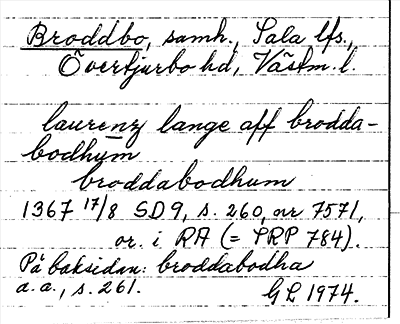 Broddbo, samh., Sala lfs.,
Övertjurbo hd, Västm. l.
laurenz lange aff brodda-
bodhum
broddabodhum
1367 17/8 SD 9, s. 260, nr 7571,
or. i RA (= PRP 784).
På baksidan: broddabodha
a.a., s. 261. GL 1974.